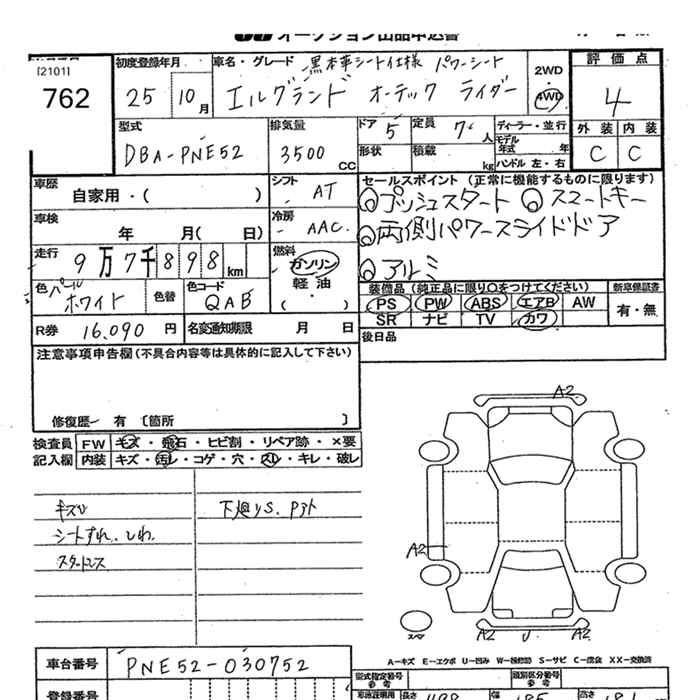 オークション出品申込書
[2101]
762
初度登録年月
25 10月
車名・グレード 黒本革シート仕様 パワーシート
エルグランド オーテック ライダー
2WD
4WD
評価点
4
外装 内装
C C
型式
DBA-PNE52
排気量
3500 CC
ドア 5
形状
定員 7人
積載 kg
ディーラー・並行
モデル年式 年
ハンドル 左・右
車歴
自家用・( )
シフト AT
冷房 AAC
車検
年 月( 日)
走行
9万7千898km
燃料
ガソリン
軽油
( )
色 パール
ホワイト
色替
色コード
QAB
R券 16,090 円
名変通知期限 月 日
セールスポイント (正常に機能するものに限ります)
プッシュスタート スマートキー
両側パワースライドドア
アルミ
装備品 (純正品に限り○をつけてください)
PS PW ABS エアB AW
SR ナビ TV カワ
新車保証書
有・無
後日品
注意事項申告欄(不具合内容等は具体的に記入して下さい)
修復歴- 有 〔箇所 〕
検査員
記入欄
FW キズ・飛石・ヒビ割・リペア跡・×要
内装 キズ・汚レ・コゲ・穴・スレ・キレ・破レ
キズU
シートすれ、しわ
スタッドレス
下廻りS.
A2
A2
A2 U A2
スペア
A-キズ E-エクボ U-凹み W-補修跡 S-サビ C-腐食 XX-交換済
車台番号
PNE52-030752
登録番号
型式指定番号
参考
類別区分番号
参考
車庫証明用
参考
長さ
幅
高さ